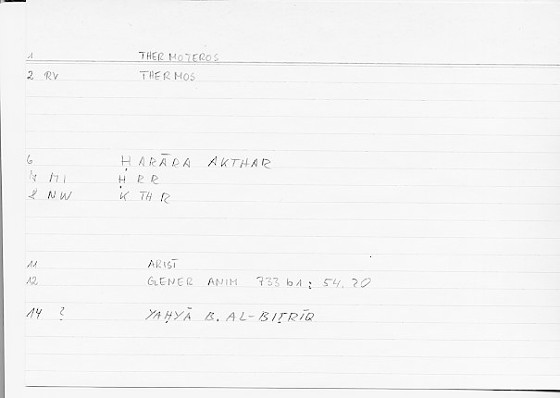 1 THERMOTEROS
2 RV THERMOS
6 ḤARĀRA AKTHAR
7 MI ḤRR
8 NW KTHR
11 ARIST
12 GENER ANIM 733 b1 : 54.20
14 ? YAḤYĀ B. AL-BIṬRĪQ